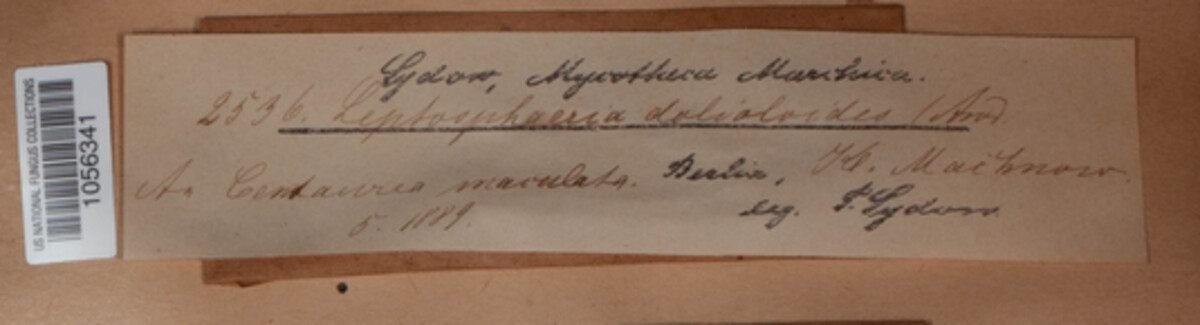 US NATIONAL FUNGUS COLLECTIONS
1056341
Sydow, Mycotheca Marchica.
2536. Leptosphaeria dolioloides (Awd
An Centaurea maculata. Berlin, Kl. Machnow.
5. 1889. leg. P. Sydow.